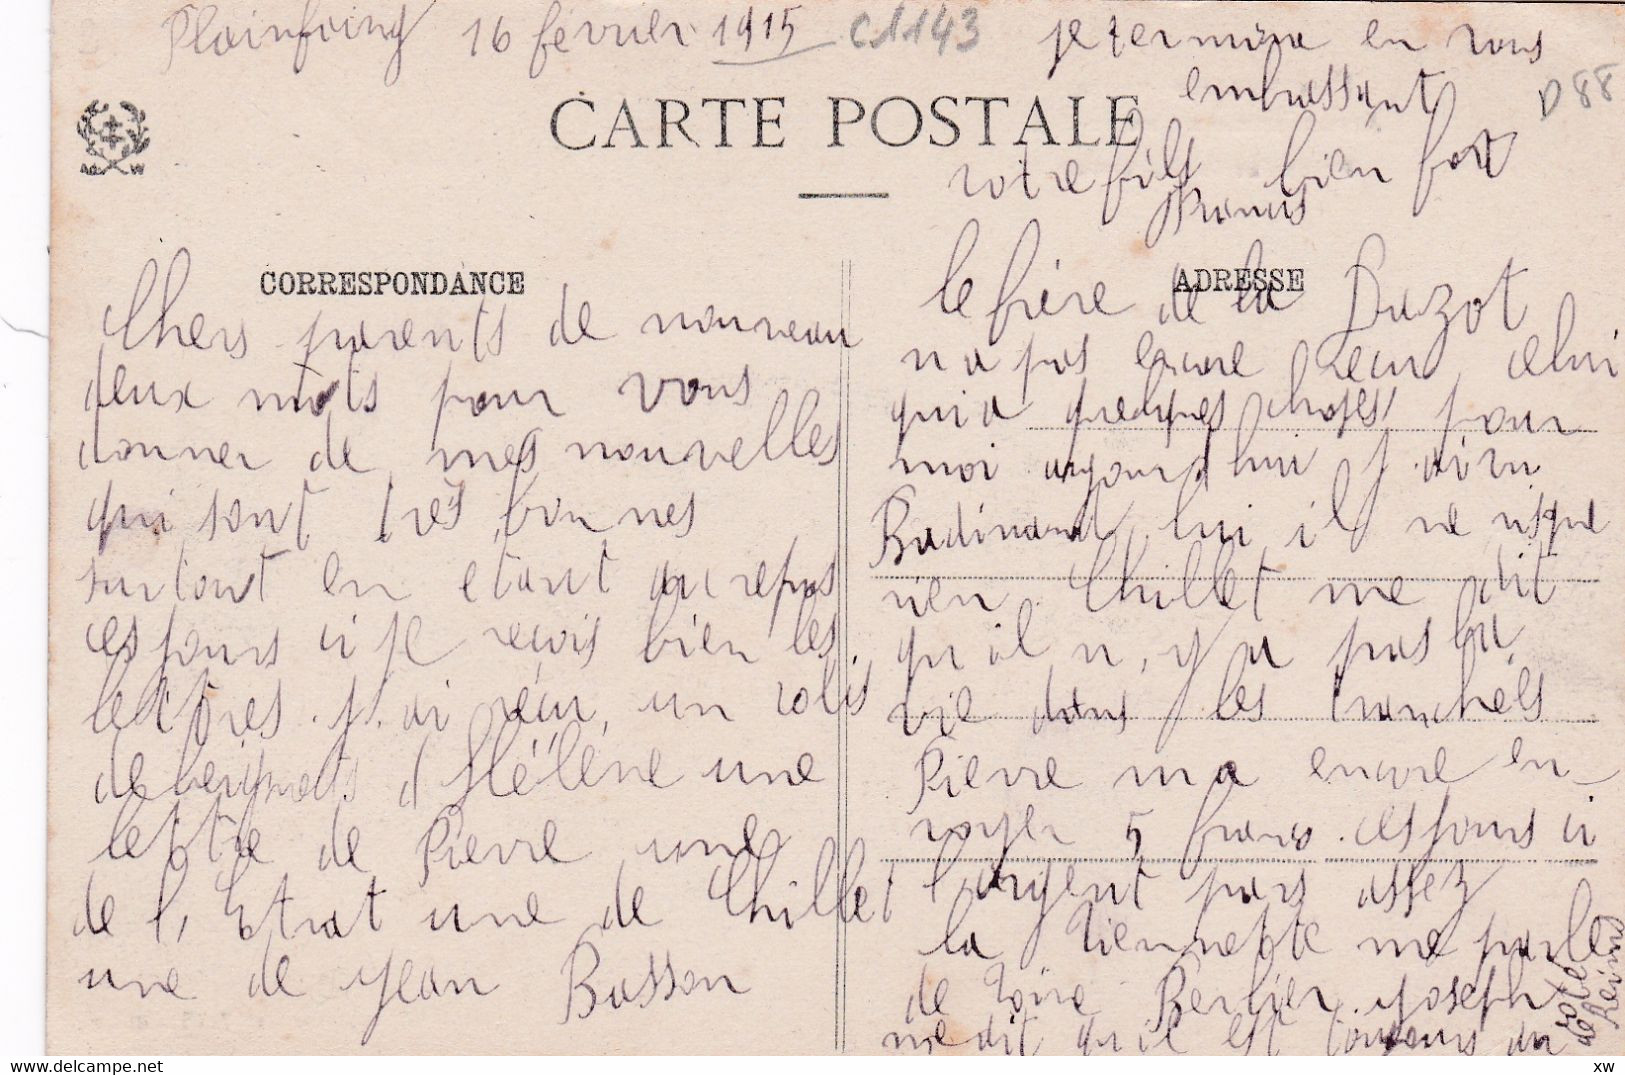 Plainfaing 16 février 1915 C1143
CARTE POSTALE
D88
A.D. W
CORRESPONDANCE
Chers parents de nouveau
deux mots pour vous
donner de mes nouvelles
qui sont très bonnes
surtout en etant au repos
ces jours ci je reçois bien les
lettres. j'ai reçu, un colis
de beignets d'Hélène une
lettre de Pierre une
de l'Etrat une de Chillet
une de Jean Basson
ADRESSE
le frère de la Duzot
n a pas encore reçu celui
qui a quelques choses pour
moi aujourd hui j ai vu
Badinand lui il ne risque
rien Chillet me dit
qu il n, y a pas la
vie dans les tranchés
Pierre m a encore en-
voyer 5 francs ces jours ci
l'argent pars assez
la Viennette me parle
de Berlier Joseph
me dit qu'il est toujours du
coté
de Reims
je termine en vous
embrassant
bien fort
votre fils
Francis